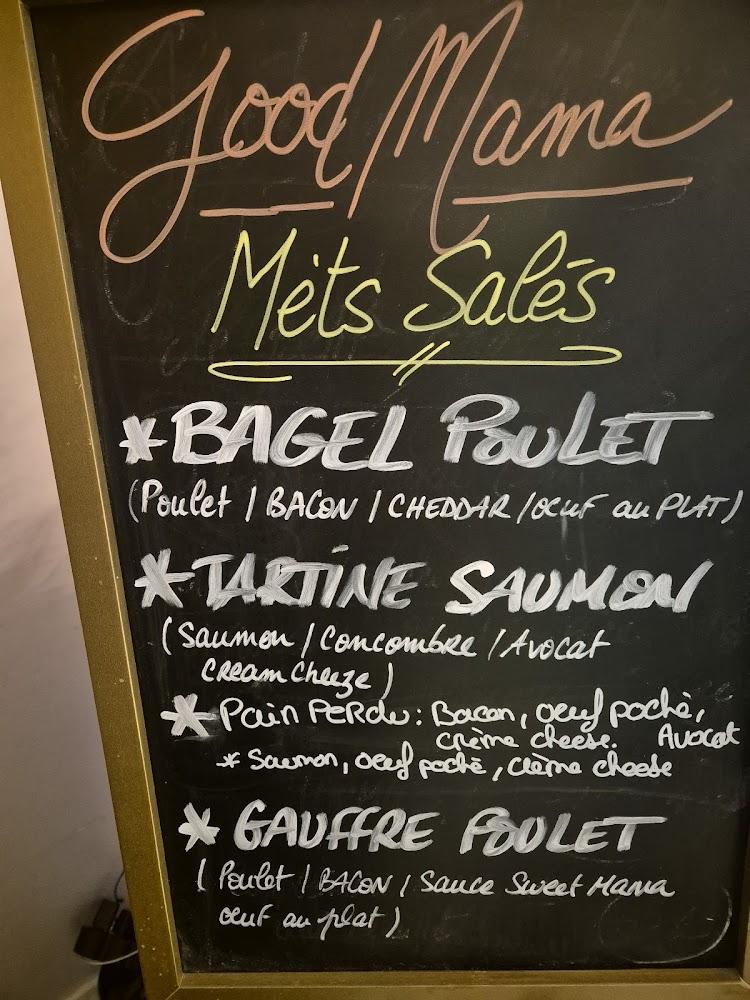 Good Mama
Mèts Salés
*BAGEL POULET
(Poulet / BACON / CHEDDAR / OEUF au PLAT)
*TARTINE SAUMON
(Saumon / Concombre / Avocat
CREAM Cheeze)
* Pain PERdu : Bacon, oeuf poché,
crème cheese. Avocat
* Saumon, oeuf poché, crème cheese
* GAUFFRE POULET
(Poulet / BACON / Sauce Sweet Mama
oeuf au plat)